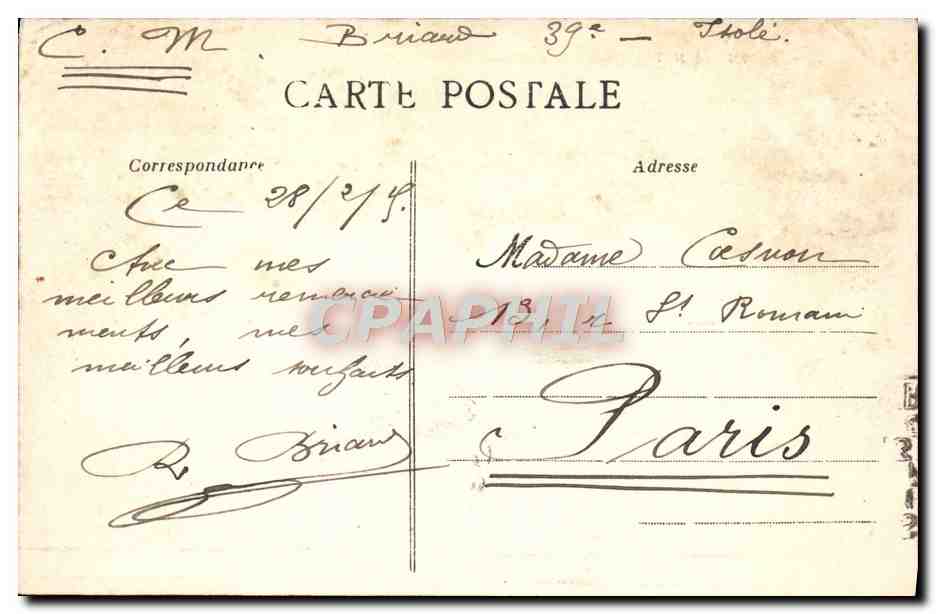 C. M. Briand 39e — Isolé.
CARTE POSTALE
Correspondance
Ce 28/2/15.
Avec mes
meilleurs remercie
ments, mes
meilleurs souhaits
R. Briand
Adresse
Madame
r St Romain
à
Paris
CPAPHIL